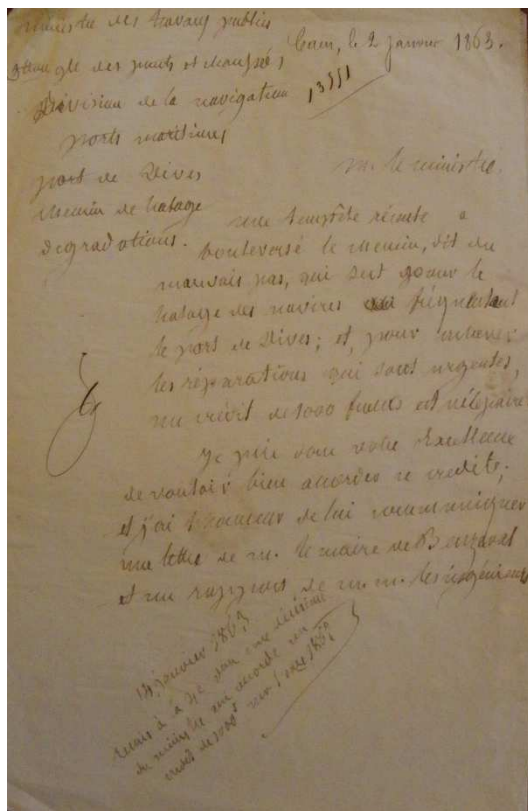 ministre des travaux publics
Caen, le 2 janvier 1863.
des ponts et chaussés
Division de la navigation
13551
ports maritimes
port de Dives
m. le ministre.
chemin de halage
dégradations.
une tempête récente a
bouleversé le chemin, dit du
mauvais pas, qui sert pour le
halage des navires fréquentant
le port de Dives; et, pour
les réparations qui sont urgentes,
un crédit de 1000 francs est nécessaire
Je prie donc votre Excellence
de vouloir bien accorder ce crédit;
et j'ai l'honneur de lui communiquer
une lettre de m. le maire de Beuzeval
et un rapport de m.m. les ingénieurs
14 janvier 1863
décision
du ministre qui accorde un
crédit de 1000f sur